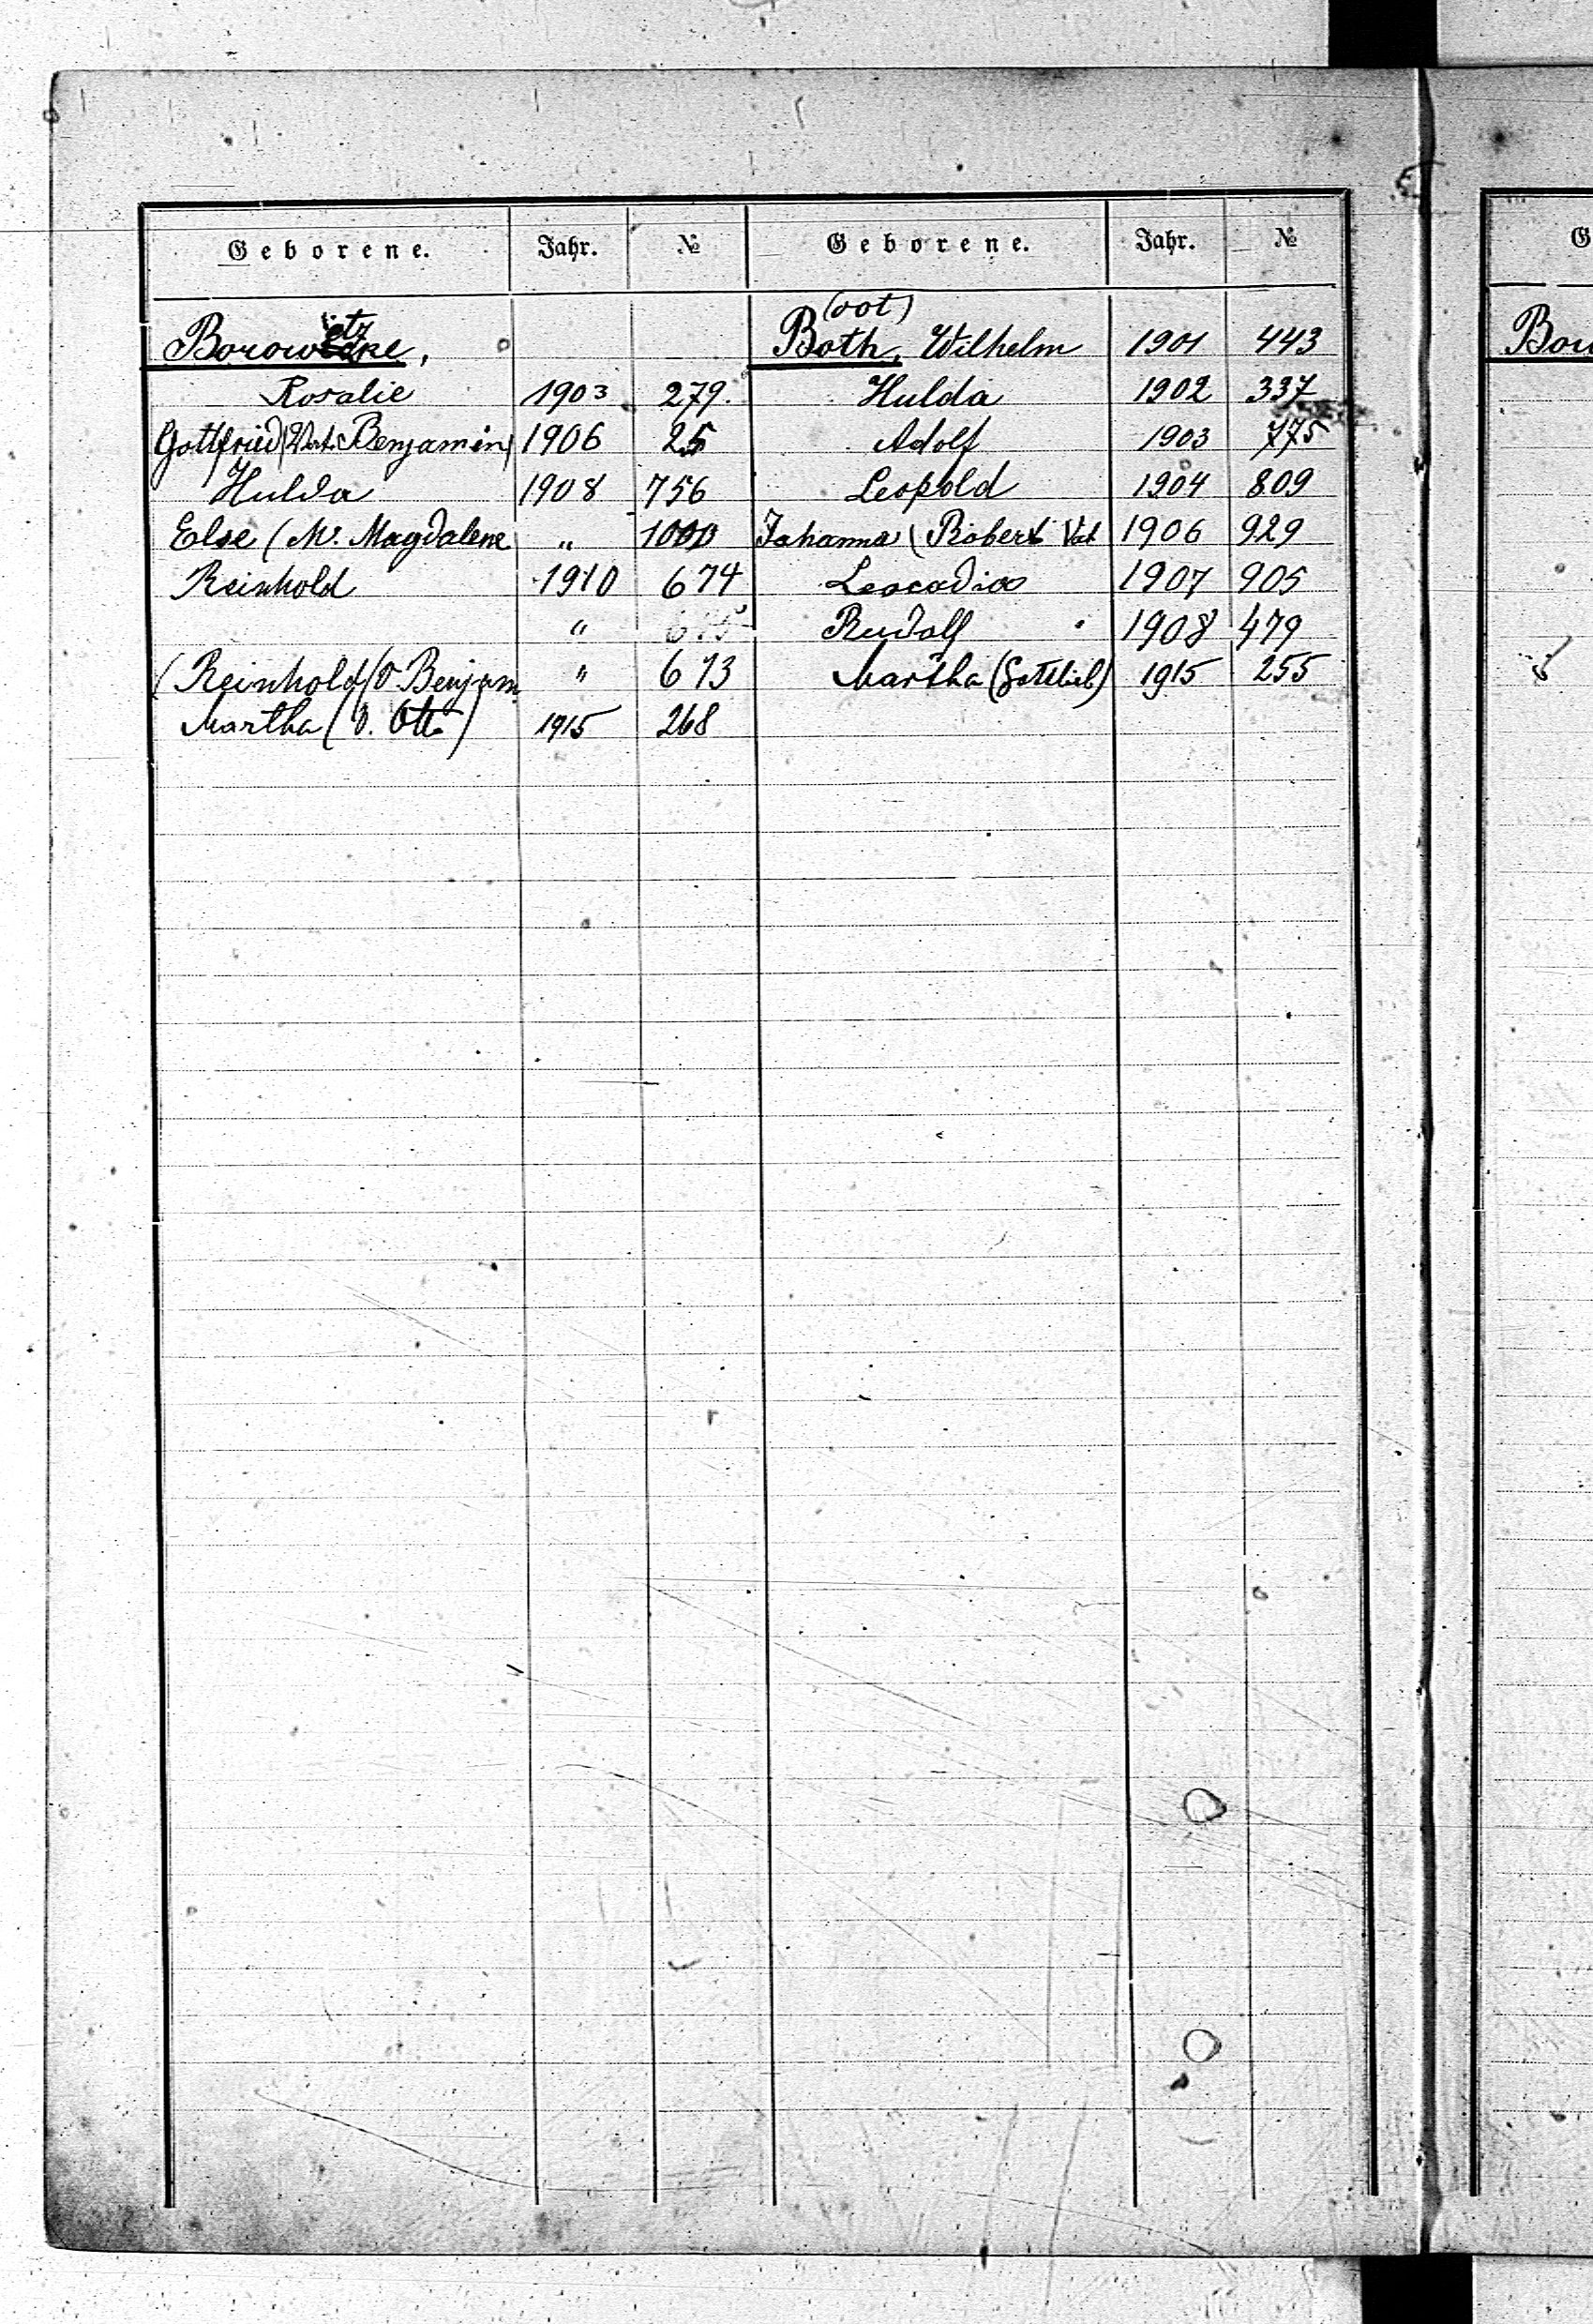 Geborene. Jahr. № Geborene. Jahr. №
(oot)
Both, Wilhelm 1901 443
Rosalie 1903 279. Hulda 1902 337
Gottfried (Vat. Benjamin) 1906 25 Adolf 1903 775
Hulda 1908 756 Leopold 1904 809
Else (M. Magdalene " Johanna (Robert Vat 1906 929
Reinhold 1910 674 Leocadia 1907 905
" 675 Rudolf 1908 479
(Reinhold (V Benjam " 673 Martha (Gottlieb) 1915 255
Martha (V. Otto) 1915 268